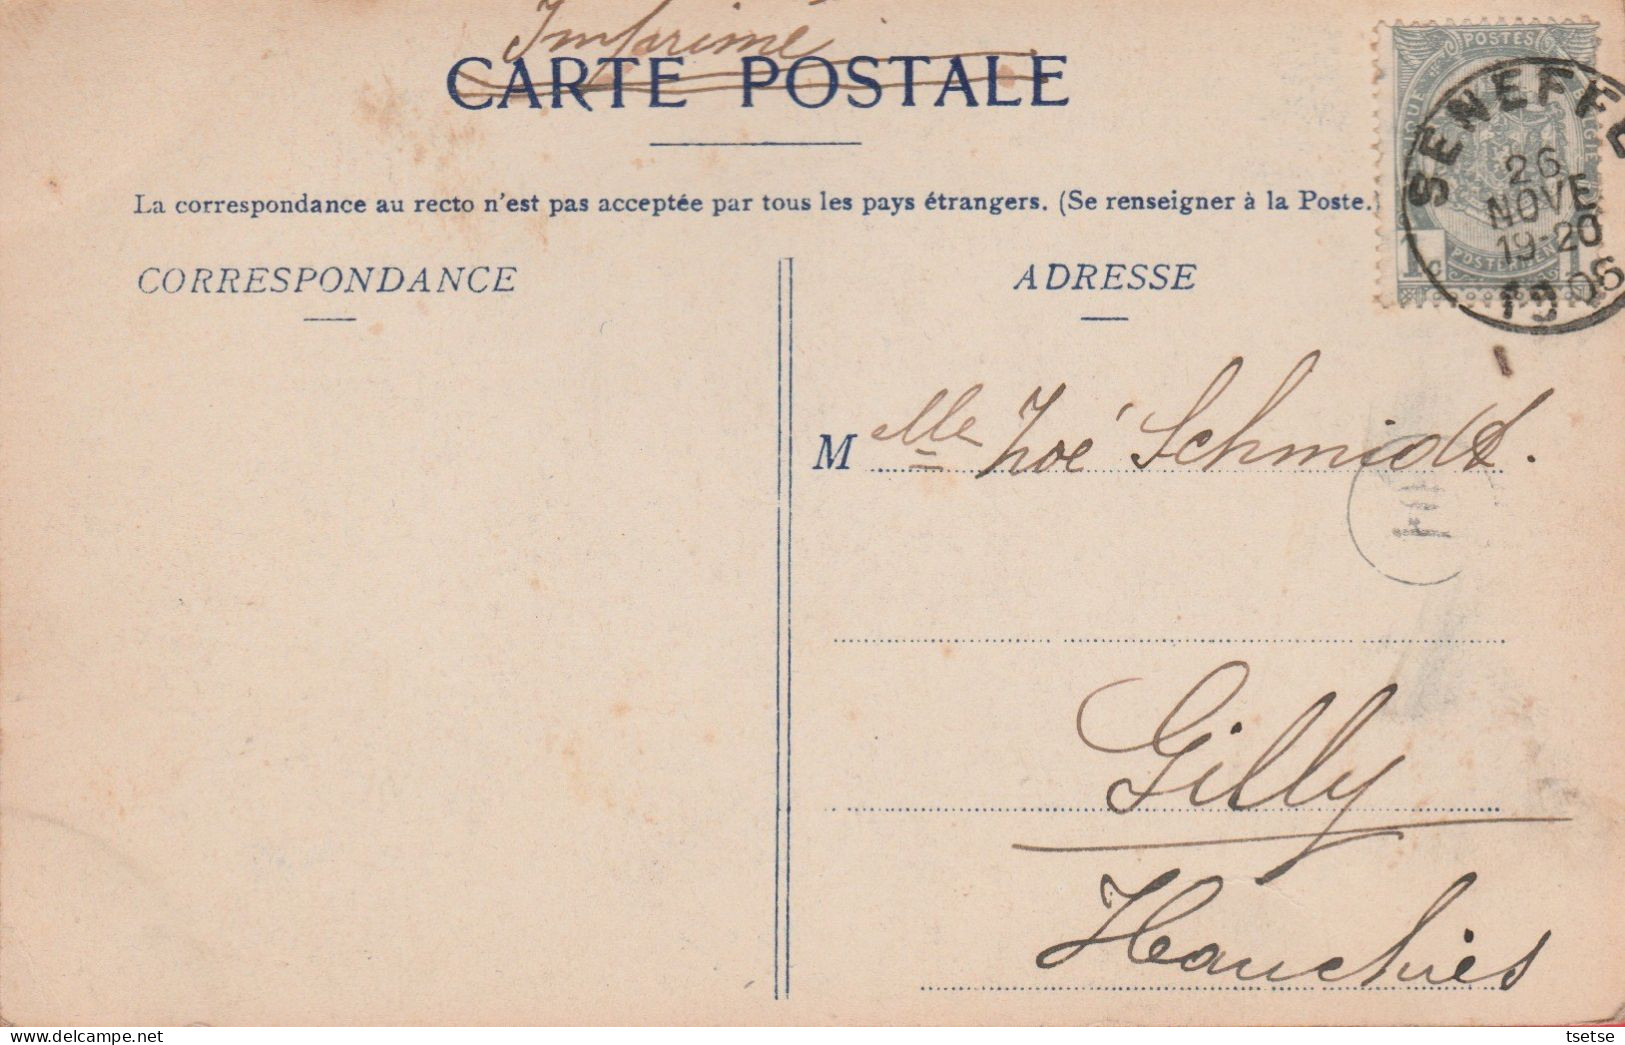 Imprimé
CARTE POSTALE
La correspondance au recto n'est pas acceptée par tous les pays étrangers. (Se renseigner à la Poste.)
CORRESPONDANCE
ADRESSE
POSTES
SENEFFE
26
NOVE
19-20
1906
1 c
M lle Zoé Schmidt.
Gilly
Hauchies
tsetse